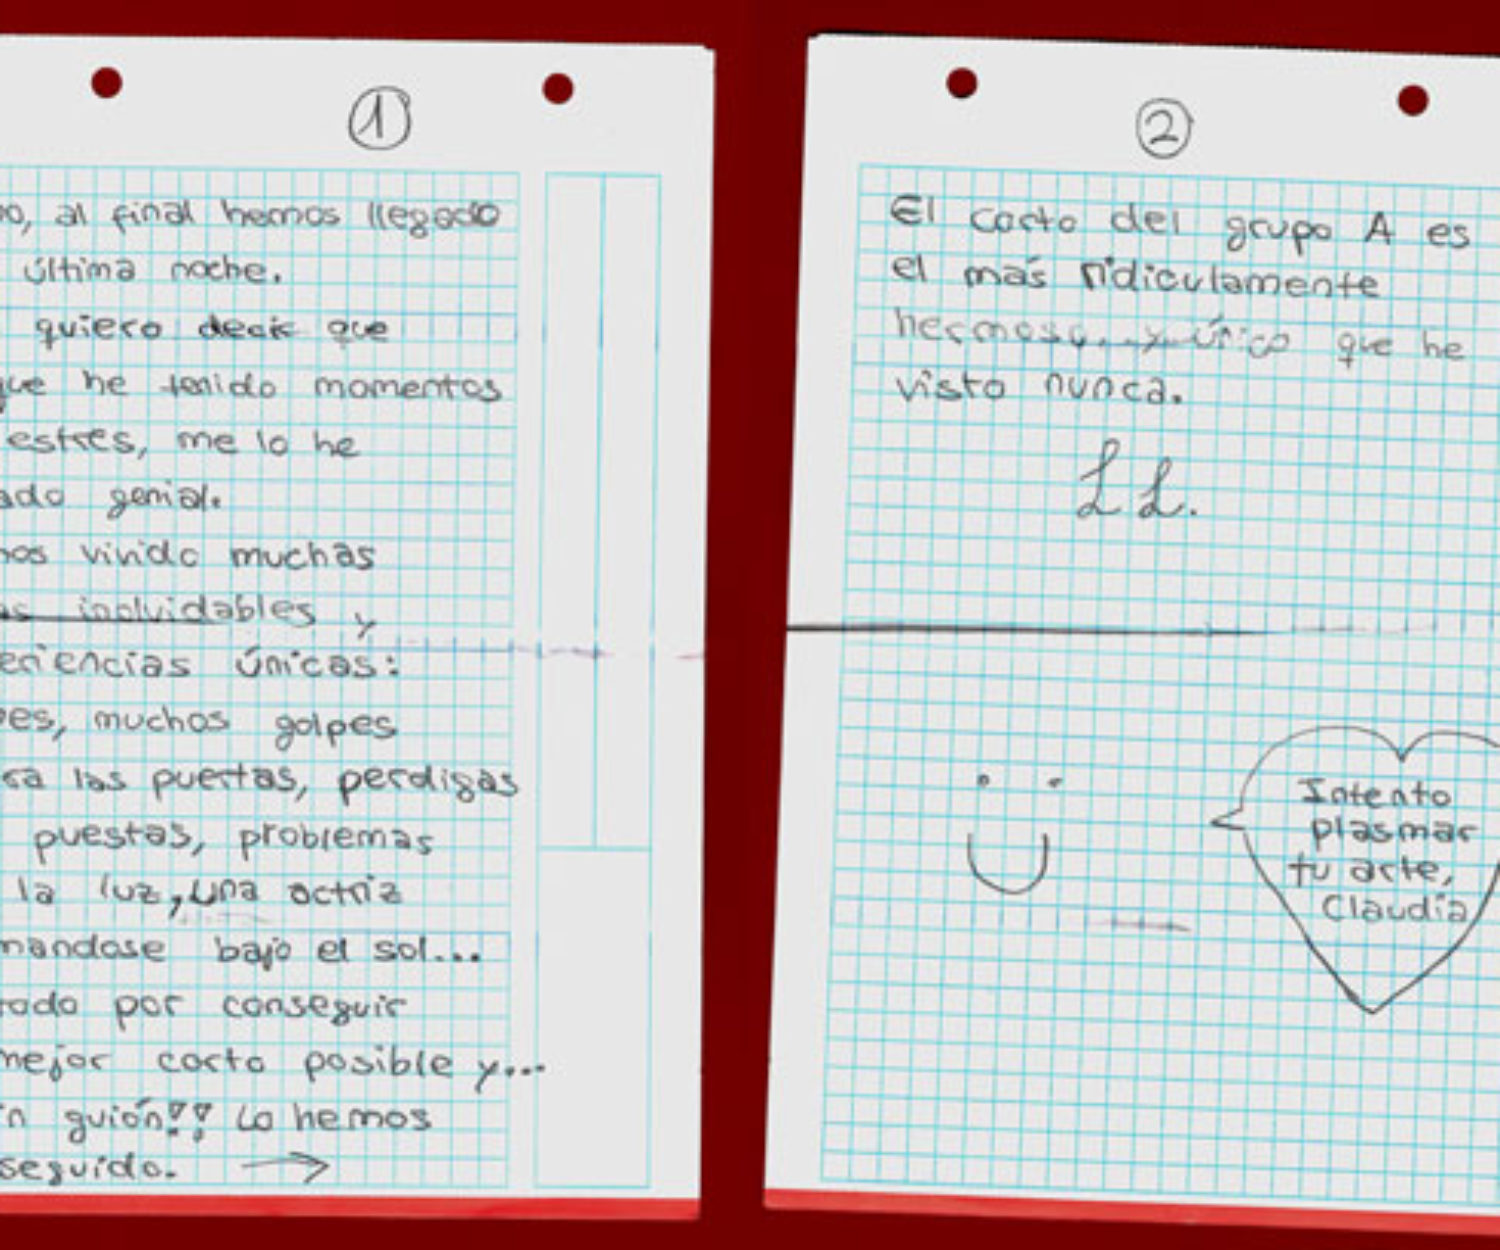 1
no, al final hemos llegado
última noche.
quiero decir que
que he tenido momentos
estres, me lo he
ado genial.
nos vivido muchas
as inolvidables y
eriencias únicas:
es, muchos golpes
ra las puertas, perdigas
puestas, problemas
la luz, una actriz
mandose bajo el sol...
todo por conseguir
mejor corto posible y...
in guión!! Lo hemos
seguido. →
2
El corto del grupo A es
el más ridiculamente
hermoso... y único que he
visto nunca.
LL.
Intento
plasmar
tu arte,
Claudia